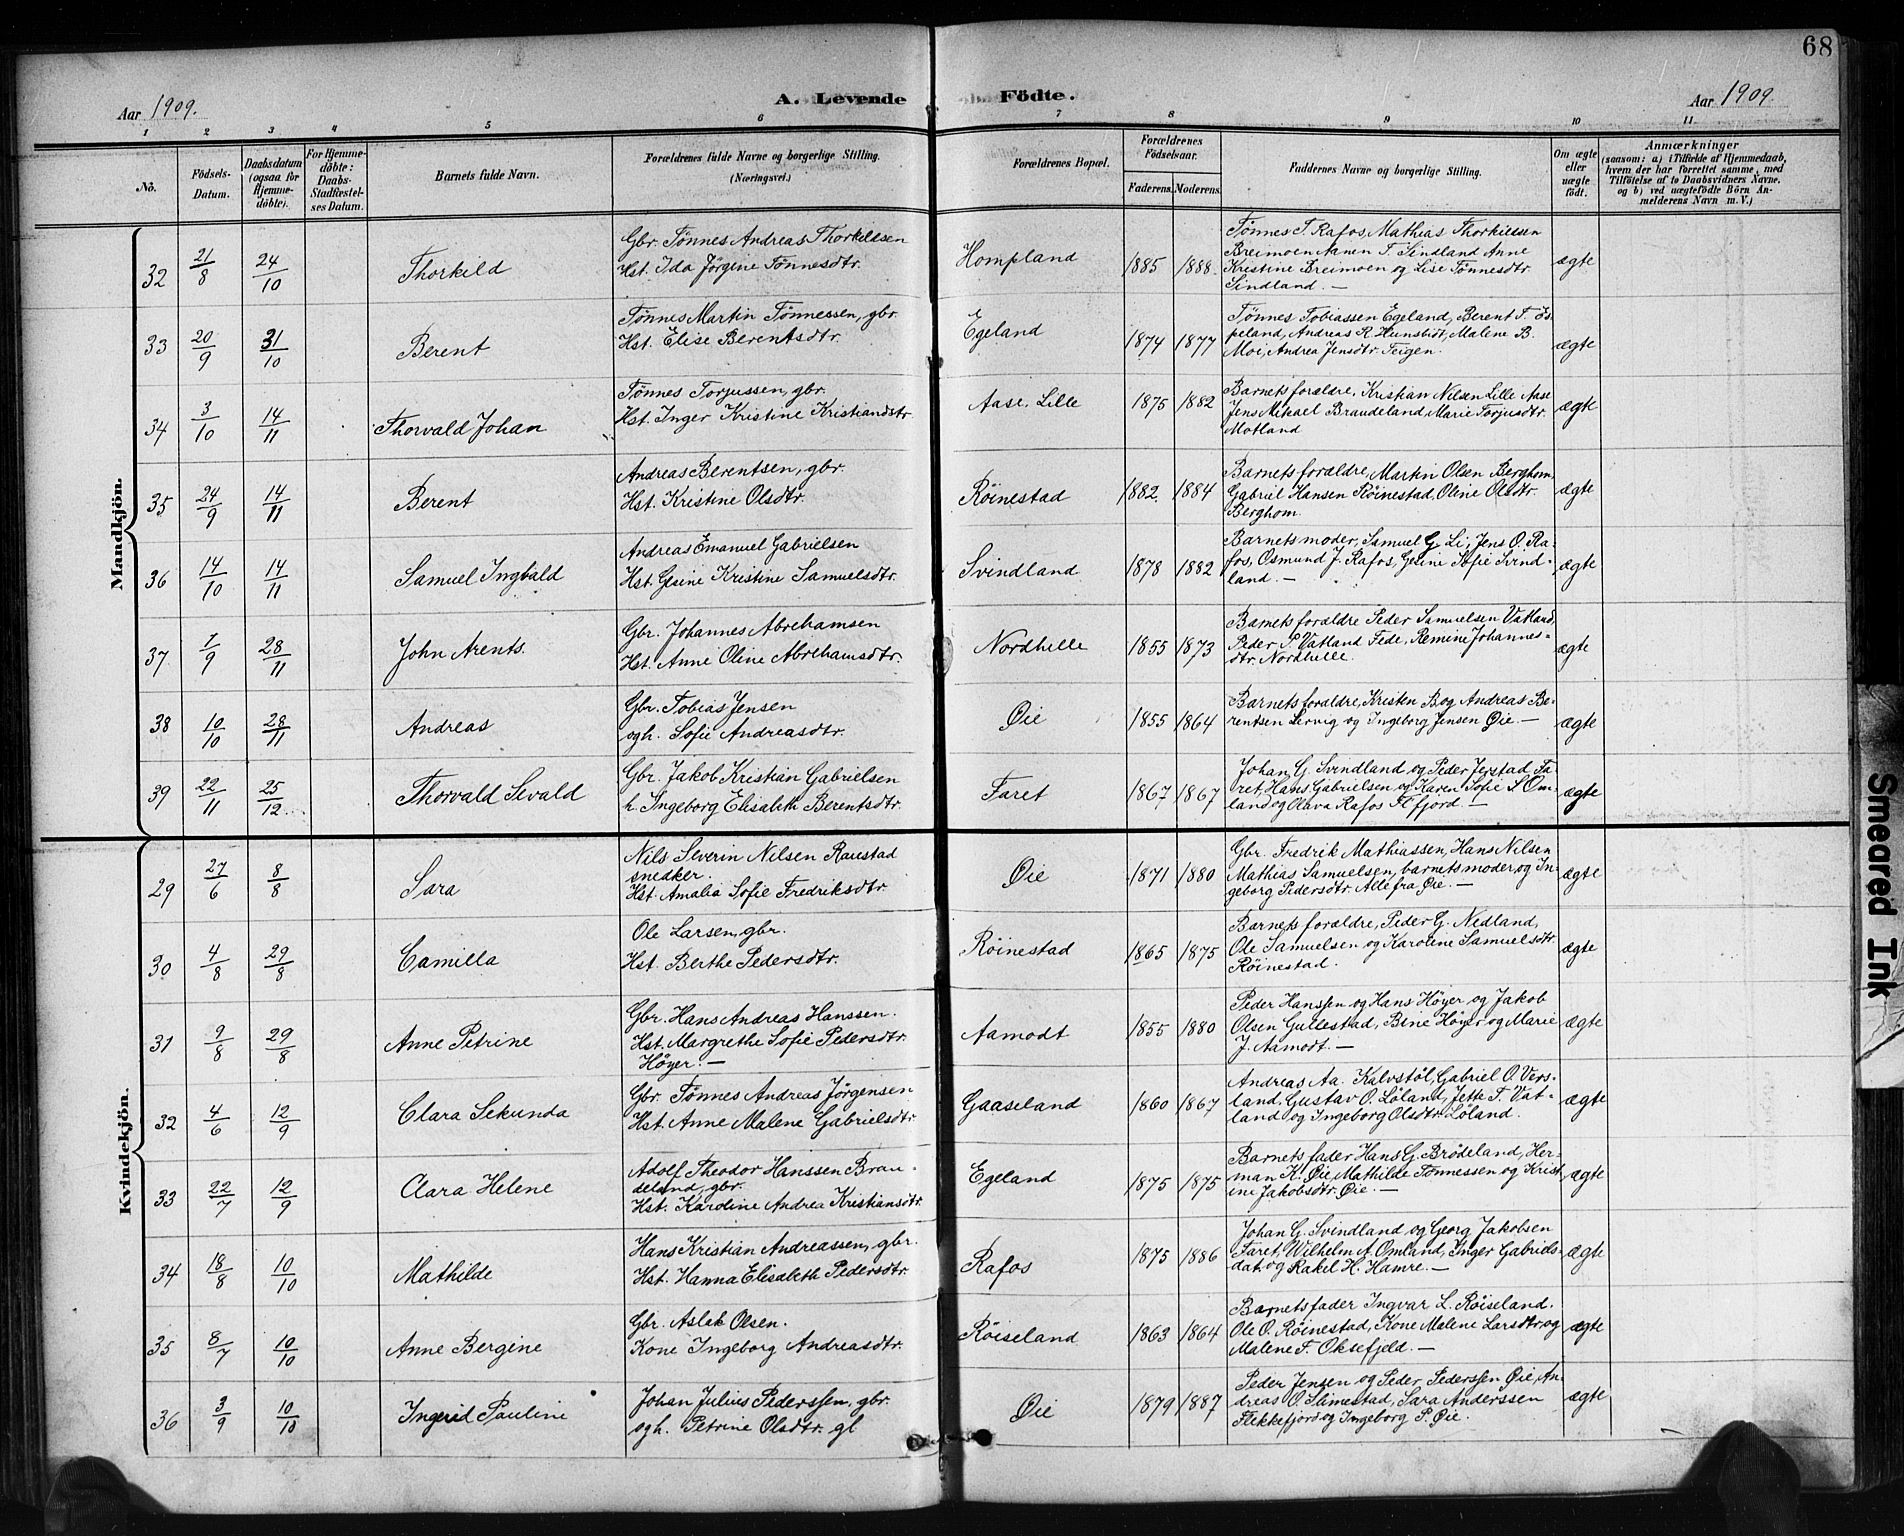 68
Aar 1909.
A. Levende Födte.
Aar 1909.
1 2 3 4 5 6 7 8 9 10 11
No.
Födsels-Datum.
Daabsdatum (ogsaa for Hjemme-döbte).
For Hjemme-döbte: Daabs-Stadfæstel-ses Datum.
Barnets fulde Navn.
Forældrenes fulde Navne og borgerlige Stilling.
(Næringsvei.)
Forældrenes Bopæl.
Forældrenes Födselsaar.
Faderens. Moderens.
Faddernes Navne og borgerlige Stilling.
Om ægte eller uægte födt.
Anmærkninger
(saasom: a) i Tilfælde af Hjemmedaab,
hvem der har forrettet samme, med
Tilföielse af to Daabsvidners Navne,
og b) ved uægtefödte Börn An-
melderens Navn m. V.)
Mandkjön.
32 21/8 24/10 Thorkild
Gbr. Tønnes Andreas Thorkildsen
Hst. Ida Jørgine Tønnesdtr.
Hompland 1885 1888
Tønnes T. Rafos, Mathias Thorkildsen
Breimoen Aanen T. Sindland Anne
Kristine Breimoen og Lise Tønnesdtr.
Sindland. —
ægte
33 20/9 31/10 Berent
Tønnes Martin Tønnessen, gbr.
Hst. Elise Berentsdtr.
Egeland 1874 1877
Tønnes Tobiassen Egeland, Berent T. Es-
peland, Andreas R. Hunsbidt, Malene B.
Moi, Andrea Jensdtr. Feigen.
ægte
34 3/10 14/11 Thorvald Johan
Tønnes Torjussen, gbr.
Hst. Inger Kristine Kristiandstr.
Aase, Lille 1875 1882
Barnets forældre, Kristian Nilsen Lille Aase
Jens Mikael Braudeland, Marie Torjusdtr.
Motland
ægte
35 24/9 14/11 Berent
Andreas Berentsen, gbr.
Hst. Kristine Olsdtr.
Röinestad 1882 1884
Barnets forældre, Martin Olsen Berghom,
Gabriel Hansen Röinestad, Oline Olsdtr.
Berghom.
ægte
36 14/10 14/11 Samuel Ingbald
Andreas Emanuel Gabrielsen
Hst. Gesine Kristine Samuelsdtr.
Svindland 1878 1882
Barnets moder, Samuel G. Li, Jens O. Ra-
fos, Osmund J. Rafos, Gesine Sofie Svind-
land. —
ægte
37 7/9 28/11 John Arents.
Gbr. Johannes Abrehamsen
Hst. Anne Oline Abrehamsdtr.
Nordhelle 1855 1873
Barnets forældre Peder Samuelsen Vatland,
Peder S. Vatland Fede, Remine Johannes-
dtr. Nordhelle.
ægte
38 10/10 28/11 Andreas
Gbr. Tobias Jensen
ogh. Sofie Andreasdtr.
Øie 1855 1864
Barnets forældre, Kristen B. og Andreas Be-
rentsen Lervig og Ingeborg Jensen Øie. —
ægte
39 22/11 25/12 Thorvald Sevald
Gbr. Jakob Kristian Gabrielsen
h. Ingeborg Elisabeth Berentsdtr.
Faret 1867 1867
Johan G. Svindland og Peder Jerstad Fa-
ret, Hans Gabrielsen og Karen Sofie S. Om-
land og Olava Rafos Flfjord —
ægte
Kvindekjön.
29 27/6 8/8 Sara
Nils Severin Nilsen Raustad
snedker.
Hst. Amalia Sofie Fredriksdtr.
Øie 1871 1880
Gbr. Fredrik Mathiassen, Hans Nilsen
Mathias Samuelsen, barnets moder og In-
geborg Pedersdtr. Alle fra Øie. —
ægte
30 4/8 29/8 Camilla
Ole Larsen, gbr.
Hst. Berthe Pedersdtr.
Röinestad 1865 1875
Barnets forældre, Peder G. Nedland,
Ole Samuelsen og Karolene Samuelsdtr.
Röinestad.
ægte
31 9/8 29/8 Anne Petrine
Gbr. Hans Andreas Hanssen.
Hst. Margrethe Sofie Pedersdtr.
Höyer. —
Aamodt 1855 1880
Peder Hanssen og Hans Höyer og Jakob
Olsen Gullestad, Bine Höyer og Marie
J. Aamodt. —
ægte
32 4/6 12/9 Clara Sekunda
Gbr. Tønnes Andreas Jörgensen
Hst. Anne Malene Gabrielsdtr.
Gaaseland 1860 1867
Andreas Aa. Kalvstöl, Gabriel O. Vers-
land, Gustav O. Löland, Jette T. Vat-
land og Ingeborg Olsdtr. Löland.
ægte
33 22/7 12/9 Clara Helene
Adolf Theodor Hanssen Brau-
deland, gbr.
Hst. Karoline Andrea Kristiansdtr.
Egeland 1875 1875
Barnets fader Hans G. Brödeland, Her-
man K. Øie, Mathilde Tønnessen og Krist-
ine Jakobsdtr. Øie. —
ægte
34 18/8 10/10 Mathilde
Hans Kristian Andreassen, gbr.
Hst. Hanna Elisabeth Pedersdtr.
Rafos 1875 1886
Johan G. Svindland og Georg Jakobsen
Faret, Wilhelm A. Omland, Inger Gabriels-
dat. og Rakel H. Hamre. —
ægte
35 8/7 10/10 Anne Bergine
Gbr. Aslak Olsen.
Kone Ingeborg Andreasdtr.
Röiseland 1863 1864
Barnets fader Ingvar L. Röiseland.
Ole O. Röinestad, Kone Malene Larsdtr. og
Malene T. Oksefjeld. —
ægte
36 3/9 10/10 Ingerid Pauline
Johan Julius Pederssen, gbr.
ogh. Petrine Olsdtr. gl
Øie 1879 1887
Peder Jensen og Peder Pederssen Øie, An-
dreas O. Slimestad, Sara Anderssen
Flekkefjord og Ingeborg P. Øie.
ægte
Smeared Ink